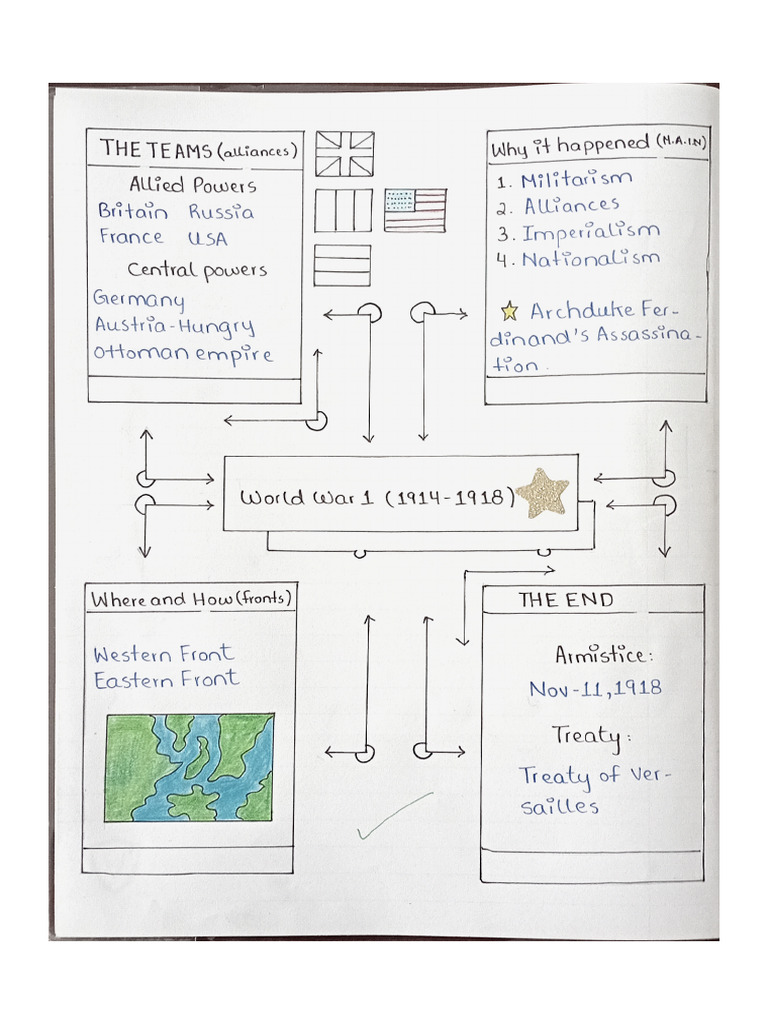 THE TEAMS (alliances)
Allied Powers
Britain Russia
France USA
Central powers
Germany
Austria-Hungry
Ottoman empire
Why it happened (M.A.I.N)
1. Militarism
2. Alliances
3. Imperialism
4. Nationalism
Archduke Fer-
dinand's Assassina-
tion.
World War 1 (1914-1918)
Where and How (fronts)
Western Front
Eastern Front
THE END
Armistice:
Nov-11,1918
Treaty:
Treaty of Ver-
sailles